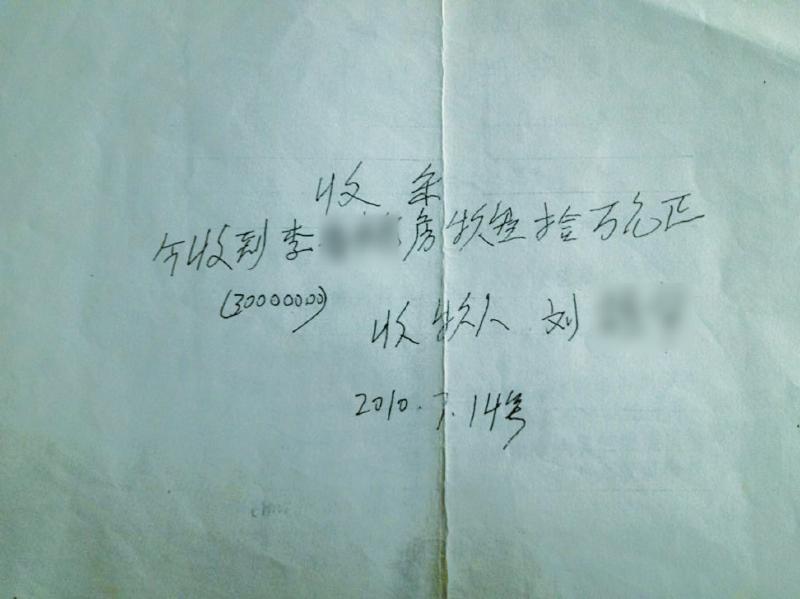 收条
今收到李 房款叁拾万元正
(30000000)
收款人 刘
2010.7.14号